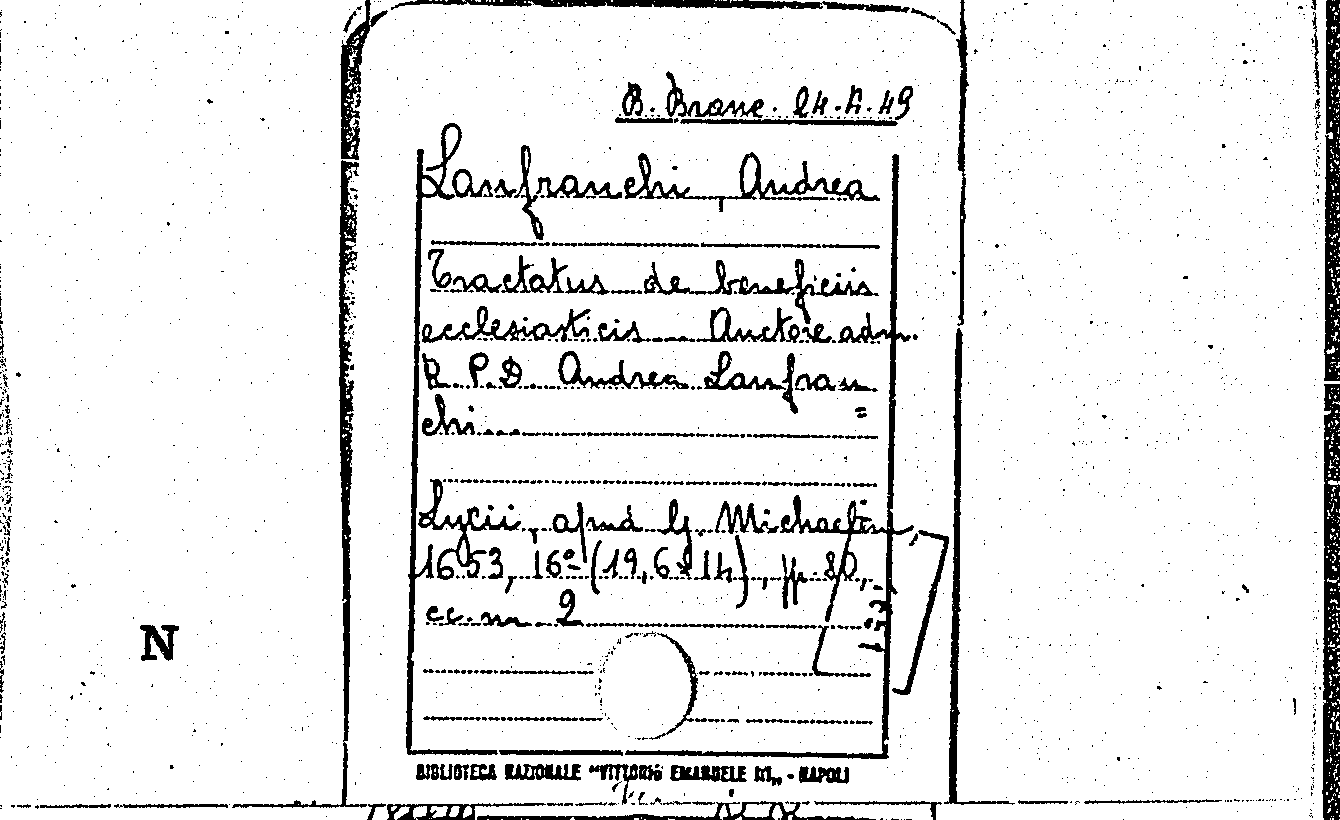 B. Branc. 24.K.49
Lanfranchi, Andrea
Tractatus de beneficiis
ecclesiasticis... Auctore adm.
R. P. D. Andrea Lanfran=
chi...
Lycii, apud Michaelem,
1653, 16º (19,6x14), pp. 80,
cc. n. 2
N
BIBLIOTECA NAZIONALE "VITTORIO EMANUELE III„ - NAPOLI